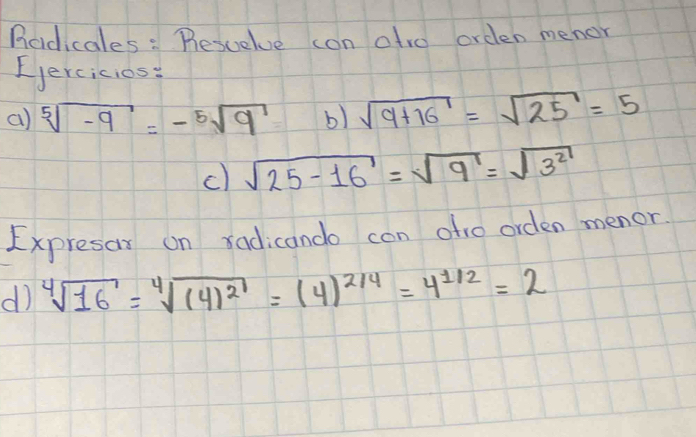 Radicales: Resuelve con otro orden menor
Ejercicios:
a) ⁵√-9 = -⁵√9 b) √9+16 = √25 = 5
c) √25-16 = √9 = √3²
Expresar un radicando con otro orden menor.
d) ⁴√16 = ⁴√(4)² = (4)^2/4 = 4^1/2 = 2